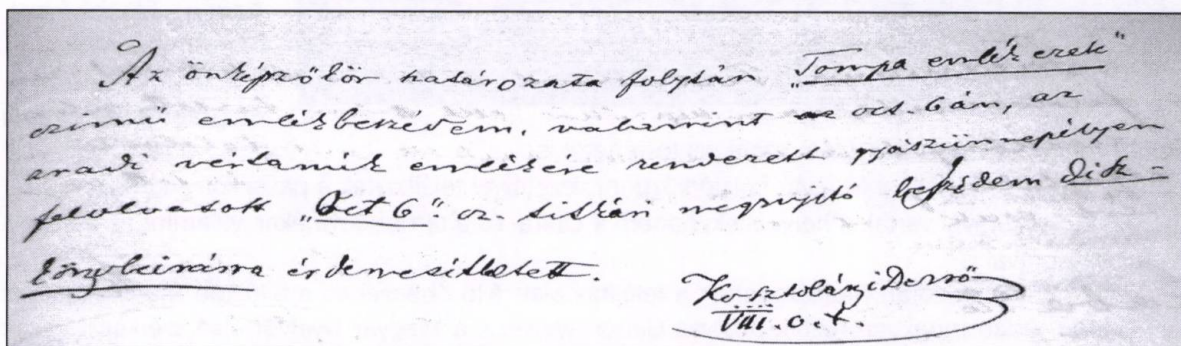 Az önképzőkör határozata folytán „Tompa emlékezete”
czimü emlékbeszédem, valamint az oct. 6án, az
aradi vértanúk emlékére rendezett gyászünnepélyen
felolvasott „Oct 6” cz. titkári megnyitó beszédem disz=
könyvbeirásra érdemesíttetett.
Kosztolányi Dezső
VIII. o. t.